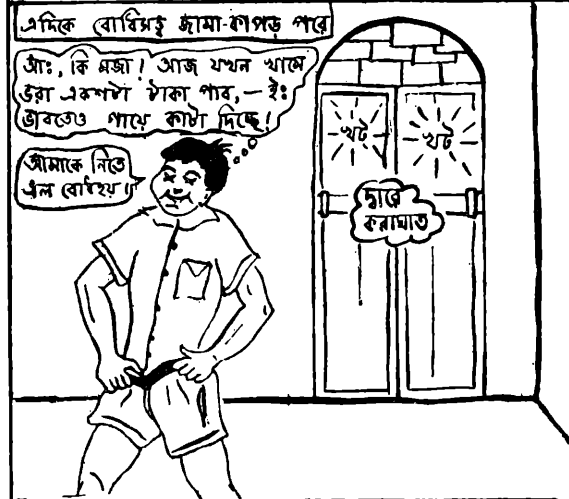 এদিকে বোধিসত্ব জামা-কাপড় পরে
আঃ, কি মজা! আজ যখন খামে
ভরা একশটা টাকা পাব,— ইঃ
ভাবতেও গায়ে কাঁটা দিচ্ছে!
আমাকে নিতে
এল বোধহয়!!
খট
খট
দ্বারে
করাঘাত